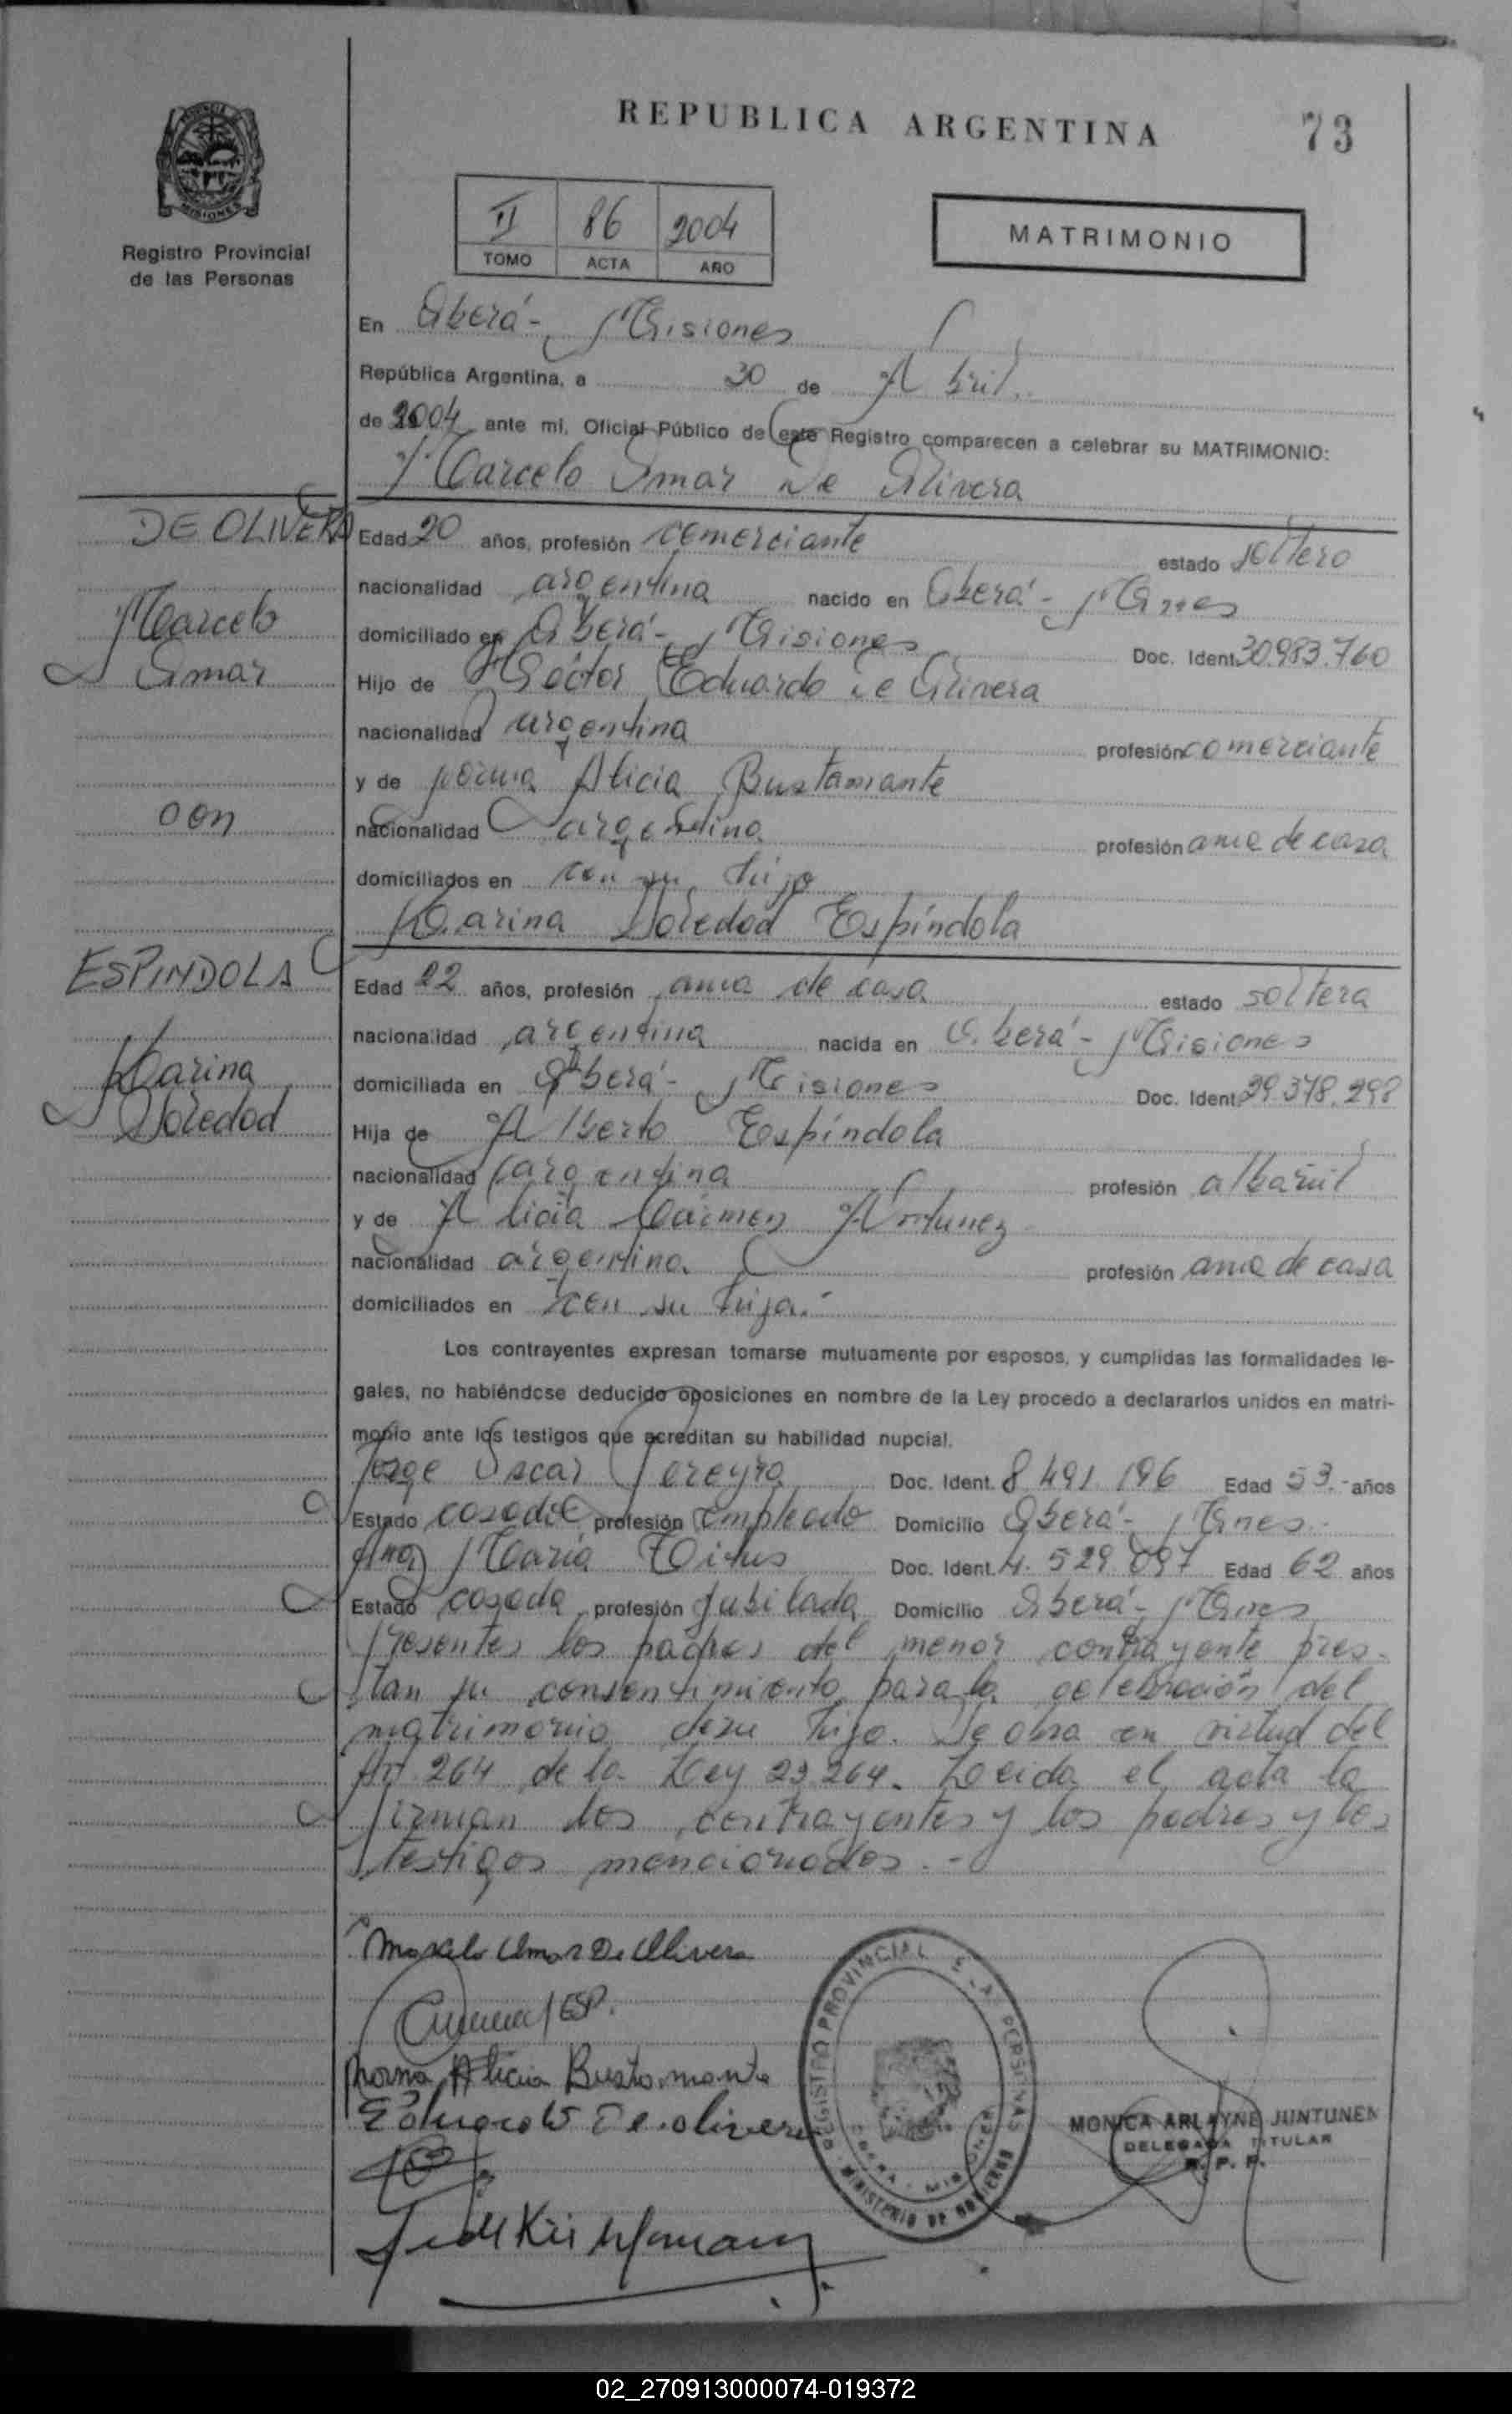 REPUBLICA ARGENTINA
73
MISIONES
Registro Provincial
de las Personas
II 86 2004
TOMO ACTA AÑO
MATRIMONIO
En Oberá - Misiones
República Argentina, a 30 de Abril
de 2004 ante mí, Oficial Público de este Registro comparecen a celebrar su MATRIMONIO:
Marcelo Omar De Olivera
DE OLIVERA
Marcelo
Omar
Edad 20 años, profesión comerciante estado soltero
nacionalidad argentina nacido en Oberá - Mnes
domiciliado en Oberá - Misiones Doc. Ident. 30.983.760
Hijo de Héctor Eduardo De Olivera
nacionalidad argentina profesión comerciante
y de Norma Alicia Bustamante
con
nacionalidad argentina profesión ama de casa
domiciliados en con su hijo
Karina Soledad Espíndola
ESPINDOLA
Karina
Soledad
Edad 22 años, profesión ama de casa estado soltera
nacionalidad argentina nacida en Oberá - Misiones
domiciliada en Oberá - Misiones Doc. Ident. 29.378.298
Hija de Alberto Espíndola
nacionalidad argentina profesión albañil
y de Alicia Carmen
nacionalidad argentina profesión ama de casa
domiciliados en con su hija.-
Los contrayentes expresan tomarse mutuamente por esposos, y cumplidas las formalidades le-
gales, no habiéndose deducido oposiciones en nombre de la Ley procedo a declararlos unidos en matri-
monio ante los testigos que acreditan su habilidad nupcial.
Jorge Oscar Pereyra Doc. Ident. 8.491.196 Edad 53.- años
Estado casado profesión empleado Domicilio Oberá - Mnes.
Ana María Doc. Ident. 4.529.097 Edad 62 años
Estado casada profesión jubilada Domicilio Oberá - Mnes
Presentes los padres del menor contrayente pres-
tan su consentimiento para la celebración del
matrimonio de su hijo. Se obra en virtud del
Art 264 de la Ley 23.264. Leída el acta la
firman los contrayentes y los padres y los
testigos mencionados.-
Marcelo Omar De Olivera
Norma Alicia Bustamante
Eduardo De olivera
REGISTRO PROVINCIAL DE LAS PERSONAS
OBERA - MISIONES
MINISTERIO DE GOBIERNO
MONICA ARLAYNE JUNTUNEN
DELEGADA TITULAR
R. P. P.
02_270913000074-019372